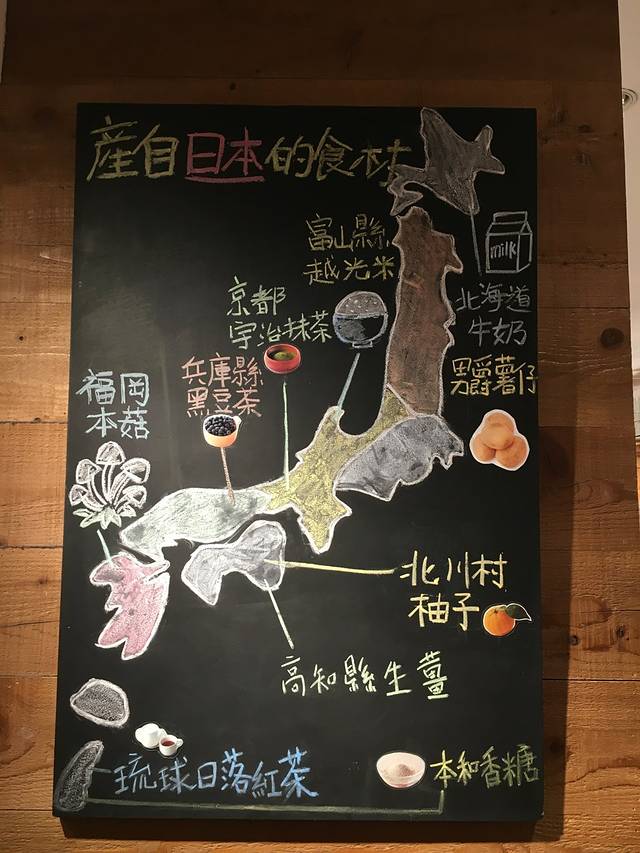 産自日本的食材
富山縣
越光米
milk
北海道
牛奶
京都
宇治抹茶
男爵薯仔
兵庫縣
黑豆茶
福岡
本菇
北川村
柚子
高知縣生薑
琉球日落紅茶
本和香糖